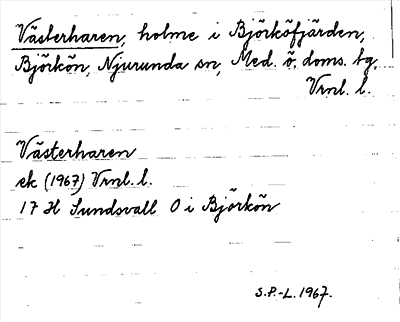 Västerharen, holme i Björköfjärden,
Björkön, Njurunda sn, Med. ö. doms. tg,
Vrnl. l.
Västerharen
ek (1967) Vrnl. l.
17 H Sundsvall O i Björkön
S.P.-L. 1967.